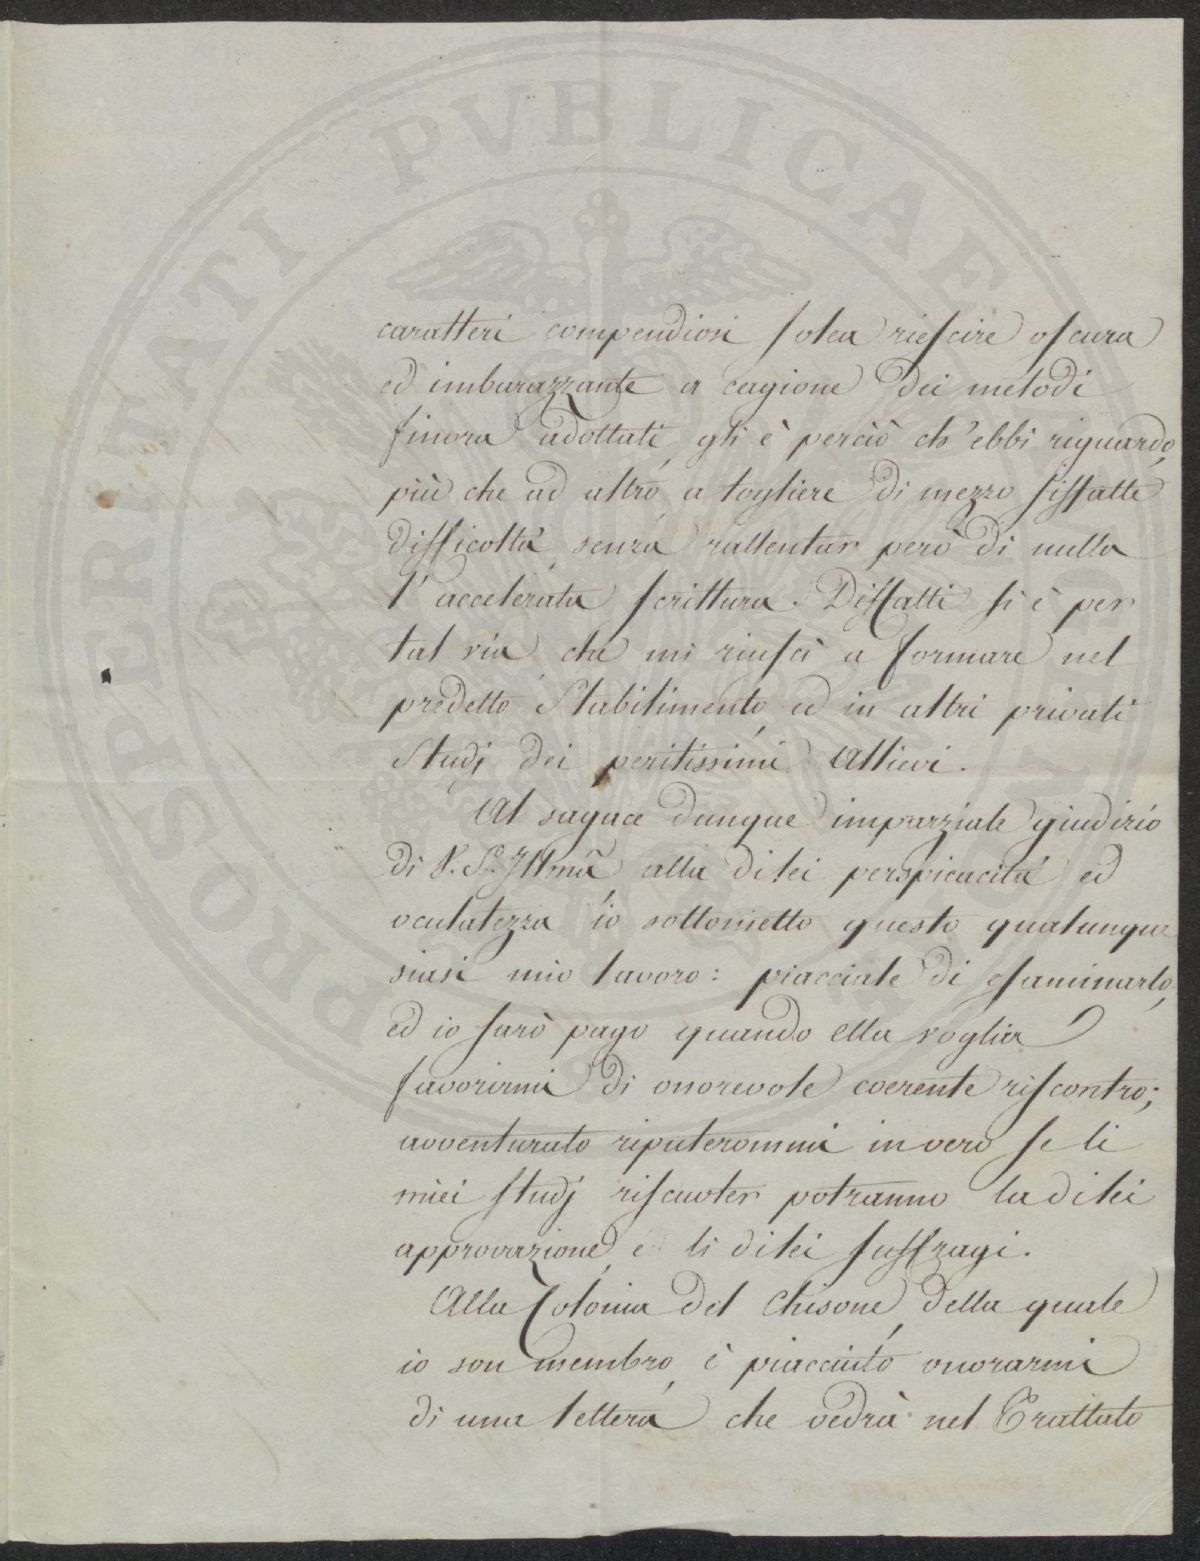 PROSPERITATI PVBLICAE
caratteri compendiosi solea riescire oscura
ed imbarazzante a cagione dei metodi
finora adottati, gli è perciò ch'ebbi riguardo,
più che ad altro, a togliere di mezzo siffatte
difficoltà, senza rallentar però di nulla
l'accelerata scrittura. Diffatti si è per
tal via, che mi riuscì a formare nel
predetto Stabilimento, ed in altri privati
Studj dei peritissimi Allievi.
Al sagace dunque imparziale giudizio
di V. S. Illma, alla di lei perspicacità ed
oculatezza io sottometto questo qualunque
siasi mio lavoro: piacciale di esaminarlo,
ed io sarò pago quando ella voglia
favorirmi di onorevole coerente riscontro;
avventurato riputerommi in vero se li
miei studj riscuoter potranno la di lei
approvazione, e li di lei suffragi.
Alla Colonia del Chisone, della quale
io son membro, è piacciuto onorarmi
di una lettera, che vedrà nel Trattato